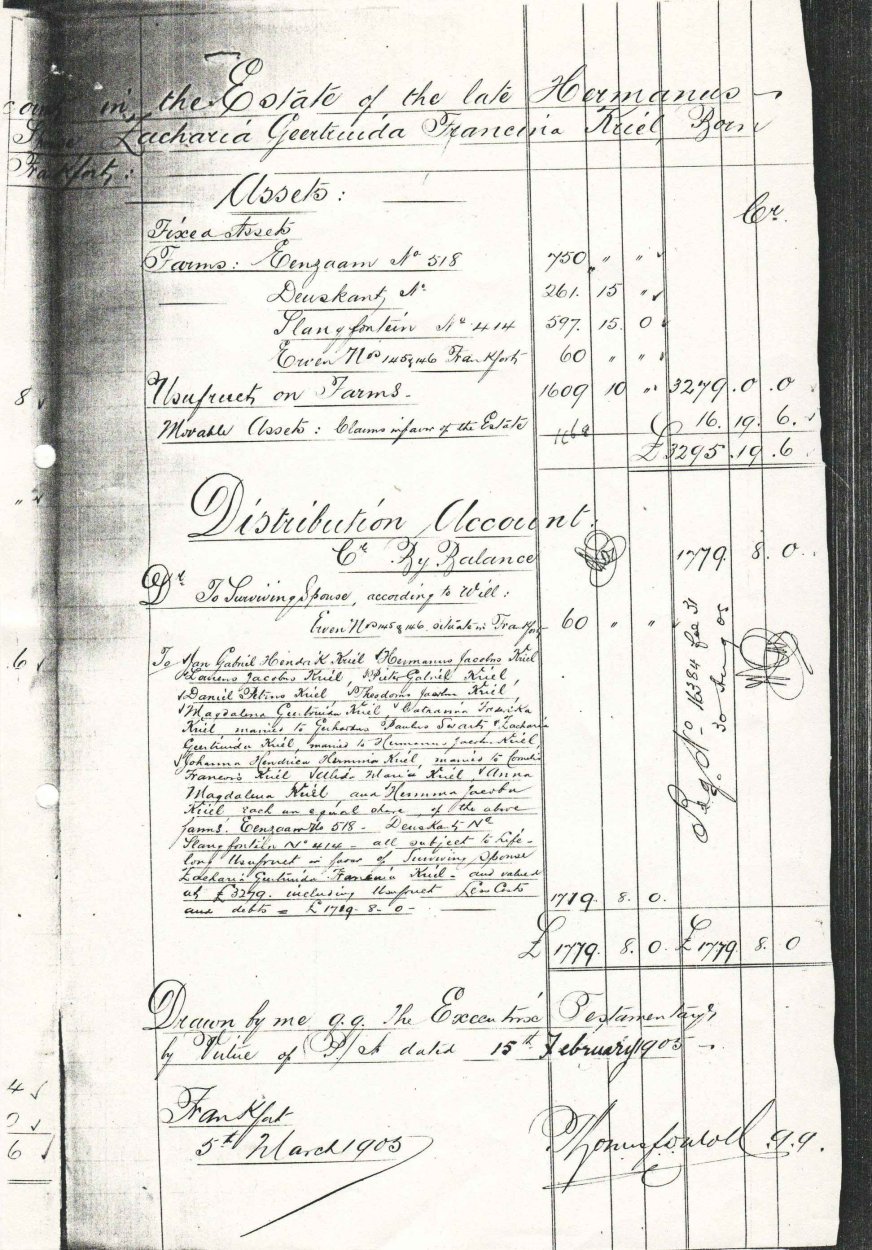 in the Estate of the late Hermanus
Zacharia Geertruida Francina Kriel, Born
Frankfort:
Assets:
Cr.
Fixed Assets
Farms: Eenzaam No 518 750 " "
Deuskant, No 261. 15 "
Slangfontein No 414 597. 15. 0
Erven Nos 145 & 146 Frankfort 60 " "
8 Usufruct on Farms. 1609 10 " 3279. 0. 0
Movable Assets: Claims in favor of the Estate 16. 19. 6.
£3295. 19. 6
Distribution Account.
Cr By Balance 1779. 8. 0
Dr To Surviving Spouse, according to Will:
Erven Nos 145 & 146 situate in Frankfort 60 " "
6 To Jan Gabriel Hendrik Kriel Hermanus Jacobus Kriel
Lourens Jacobus Kriel, Pieter Gabriel Kriel,
Daniel Kriel Theodorus Jacobus Kriel,
Magdalena Geertruida Kriel Catharina Frederika
Kriel, married to Gerhardus Paulus Swarts Zacharia
Geertruida Kriel, married to Hermanus Jacobus Kriel,
Johanna Hendrica Hermina Kriel, married to
Francois Kriel Maria Kriel, Anna
Magdalena Kriel and Hermina Jacoba
Kriel each an equal share, of the above
farms: Eenzaam No 518 - Deuskant No
Slangfontein No 414 - all subject to Life-
long Usufruct in favor of Surviving Spouse
Zacharia Geertruida Francina Kriel - and valued
at £3279. including Usufruct Less Costs
and debts = £1719. 8. 0 - 1719. 8. 0.
£1779. 8. 0 £1779 8. 0
No 16384
30 Aug 05
Drawn by me q.q. the Executrix Testamentary,
by Virtue of P/A dated 15th February 1905
Frankfort
5th March 1905
q.q.
4
6